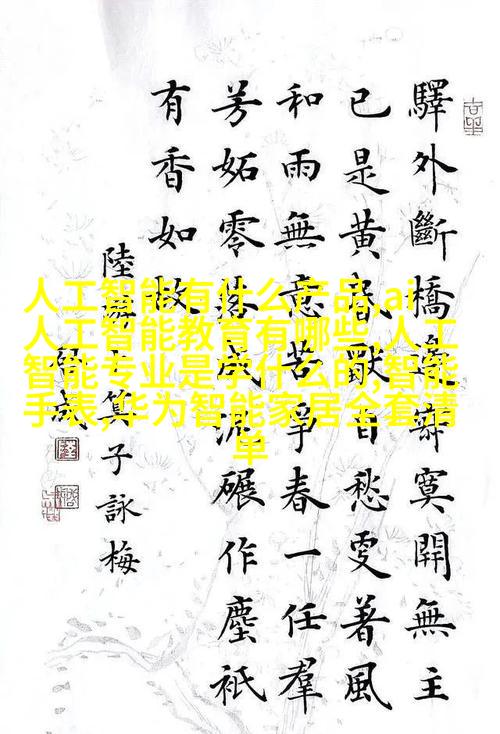 驛外斷橋邊寂寞開無主
已是黃昏獨自愁更著風
和雨無意苦爭春一任羣
芳妬零落成泥碾作塵祇
有香如故
陸游卜算子詠梅
人工智能有什么产品,ai
人工智能教育有哪些,人工
智能专业是学什么的,智能
手表,华为智能家居全套清
单